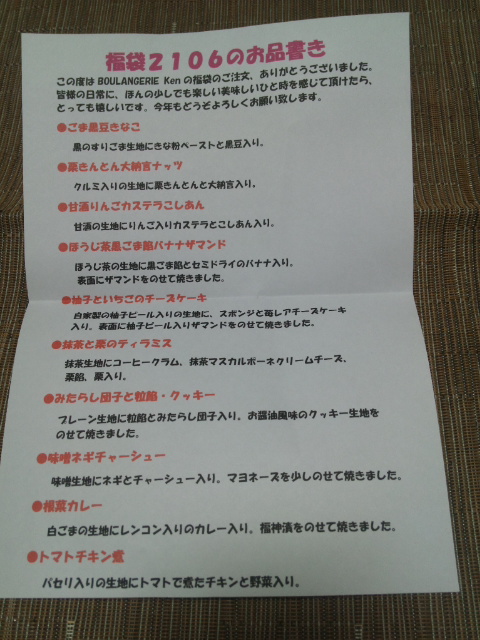 福袋２１０６のお品書き
この度は BOULANGERIE Ken の福袋のご注文、ありがとうございました。
皆様の日常に、ほんの少しでも楽しい美味しいひと時を感じて頂けたら、
とっても嬉しいです。今年もどうぞよろしくお願い致します。
●ごま黒豆きなこ
黒のすりごま生地にきな粉ペーストと黒豆入り。
●栗きんとん大納言ナッツ
クルミ入りの生地に栗きんとんと大納言入り。
●甘酒りんごカステラこしあん
甘酒の生地にりんご入りカステラとこしあん入り。
●ほうじ茶黒ごま餡バナナザマンド
ほうじ茶の生地に黒ごま餡とセミドライのバナナ入り。
表面にザマンドをのせて焼きました。
●柚子といちごのチーズケーキ
自家製の柚子ピール入りの生地に、スポンジと苺レアチーズケーキ
入り。表面に柚子ピール入りザマンドをのせて焼きました。
●抹茶と栗のティラミス
抹茶生地にコーヒークラム、抹茶マスカルポーネクリームチーズ、
栗餡、栗入り。
●みたらし団子と粒餡・クッキー
プレーン生地に粒餡とみたらし団子入り。お醤油風味のクッキー生地を
のせて焼きました。
●味噌ネギチャーシュー
味噌生地にネギとチャーシュー入り。マヨネーズを少しのせて焼きました。
●根菜カレー
白ごまの生地にレンコン入りのカレー入り。福神漬をのせて焼きました。
●トマトチキン煮
パセリ入りの生地にトマトで煮たチキンと野菜入り。